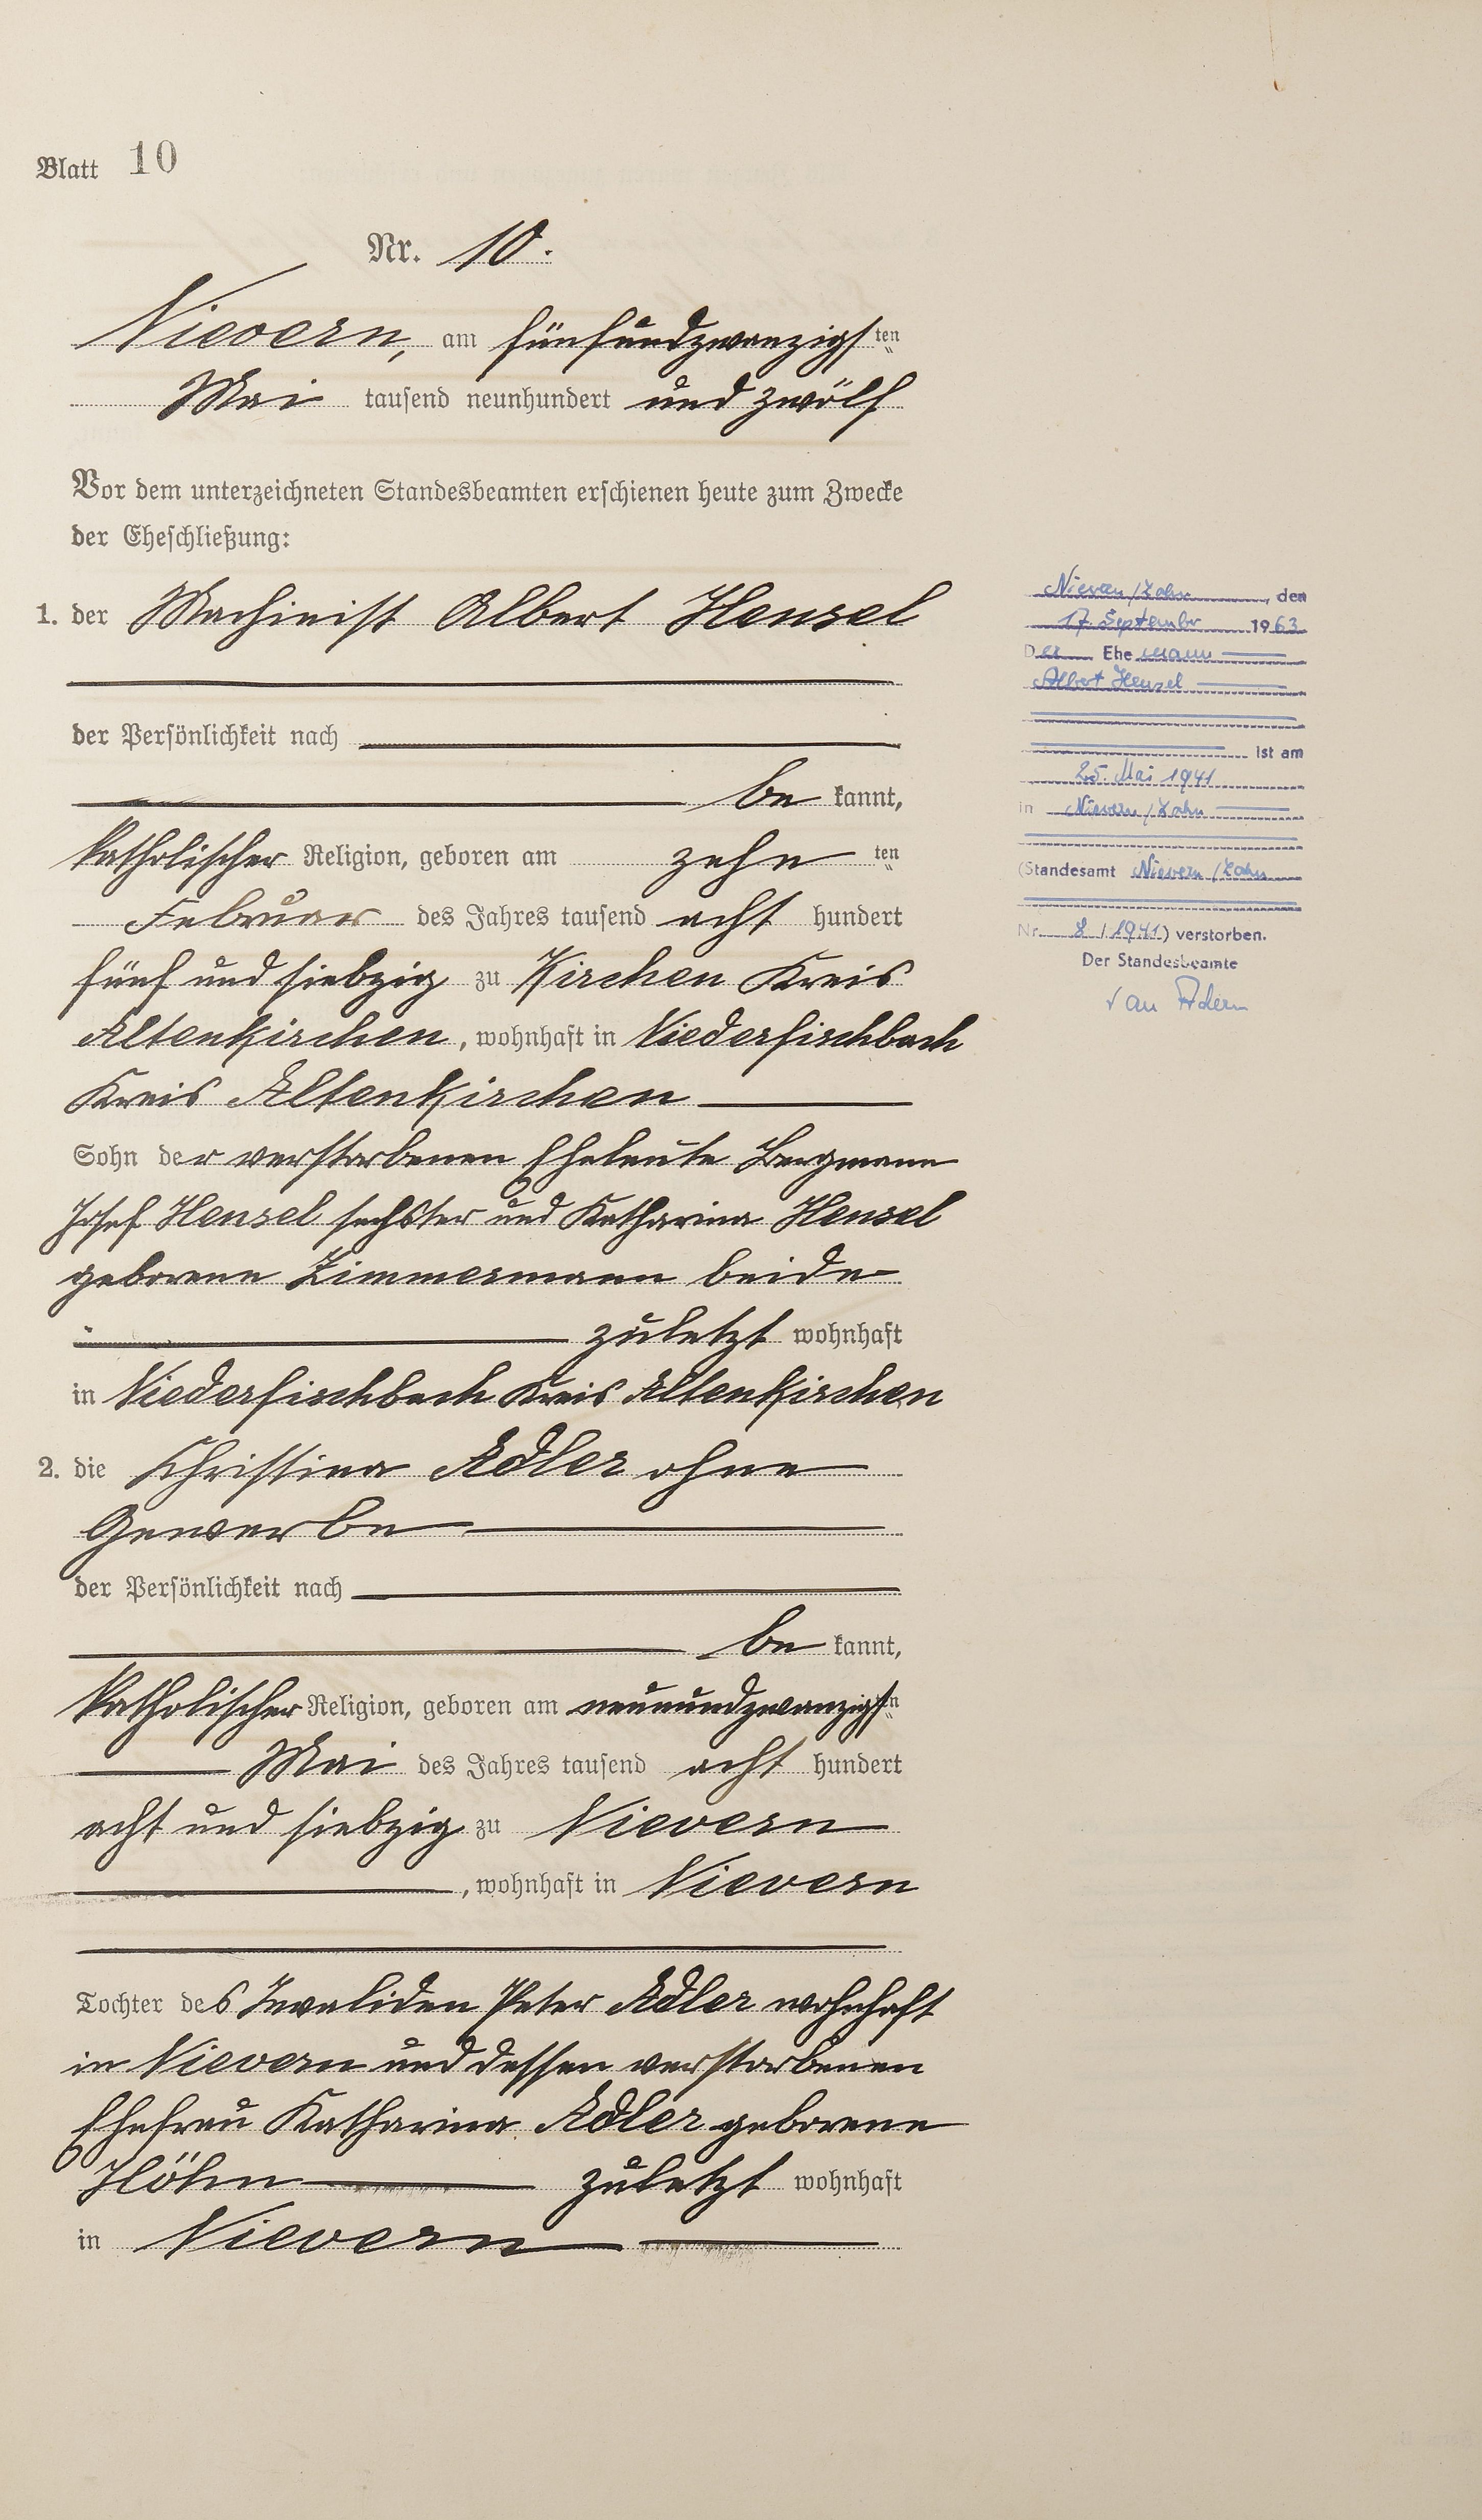 Blatt 10
Nr. 10.
Nievern, am fünfundzwanzigsten
Mai tausend neunhundert und zwölf
Vor dem unterzeichneten Standesbeamten erschienen heute zum Zwecke
der Eheschließung:
1. der Machinist Albert Hensel
der Persönlichkeit nach
be kannt,
katholischer Religion, geboren am zehn ten
Februar des Jahres tausend acht hundert
fünf und siebzig zu Kirchen Kreis
Altenkirchen, wohnhaft in Niederfischbach
Kreis Altenkirchen
Sohn der verstorbenen Eheleute Bergmann
Josef Hensel sechster und Katharina Hensel
geborene Zimmermann beide
zuletzt wohnhaft
in Niederfischbach Kreis Altenkirchen
2. die Christina Adler ohne
Gewerbe
der Persönlichkeit nach
be kannt,
katholischer Religion, geboren am neunundzwanzigsten
Mai des Jahres tausend acht hundert
acht und siebzig zu Nievern
, wohnhaft in Nievern
Tochter des Invaliden Peter Adler wohnhaft
in Nievern und dessen verstorbenen
Ehefrau Katharina Adler geborene
Höhn zuletzt wohnhaft
in Nievern
Nievern/Lahn, den
17. September 1963
Der Ehemann
Albert Hensel
ist am
25. Mai 1941
in Nievern/Lahn
(Standesamt Nievern/Lahn
Nr. 8 / 1941) verstorben.
Der Standesbeamte